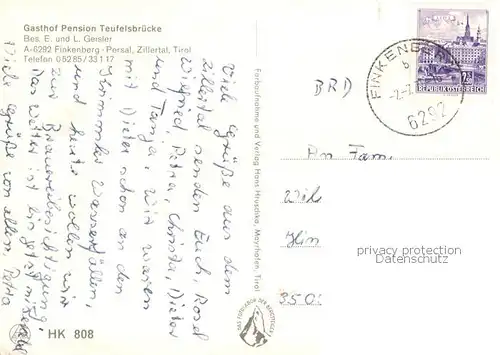 Gasthof Pension Teufelsbrücke
Bes. E. und L. Geisler
A-6292 Finkenberg - Persal, Zillertal, Tirol
Telefon 05285/33117
Viele Grüße aus dem
Zillertal senden Euch, Rosel
Wilfried, Petra, Christa, Dieter
und Tanja, wir waren
mit Dieter schon an den
Krimmler Wasserfällen,
und heute wollen wir
zur Brauereibesichtigung,
das Wetter ist
Viele Grüße von allen, Petra
HK 808
Farbaufnahme und Verlag Hans Hruschka, Mayrhofen, Tirol
DAS EDELWEISS DER BERGFOTOGRAFIE
BRD
FINKENBERG
b
-2.-7.
6292
2S
REPUBLIK ÖSTERREICH
An Fam.
Wilh
Klin
350
privacy protection
Datenschutz